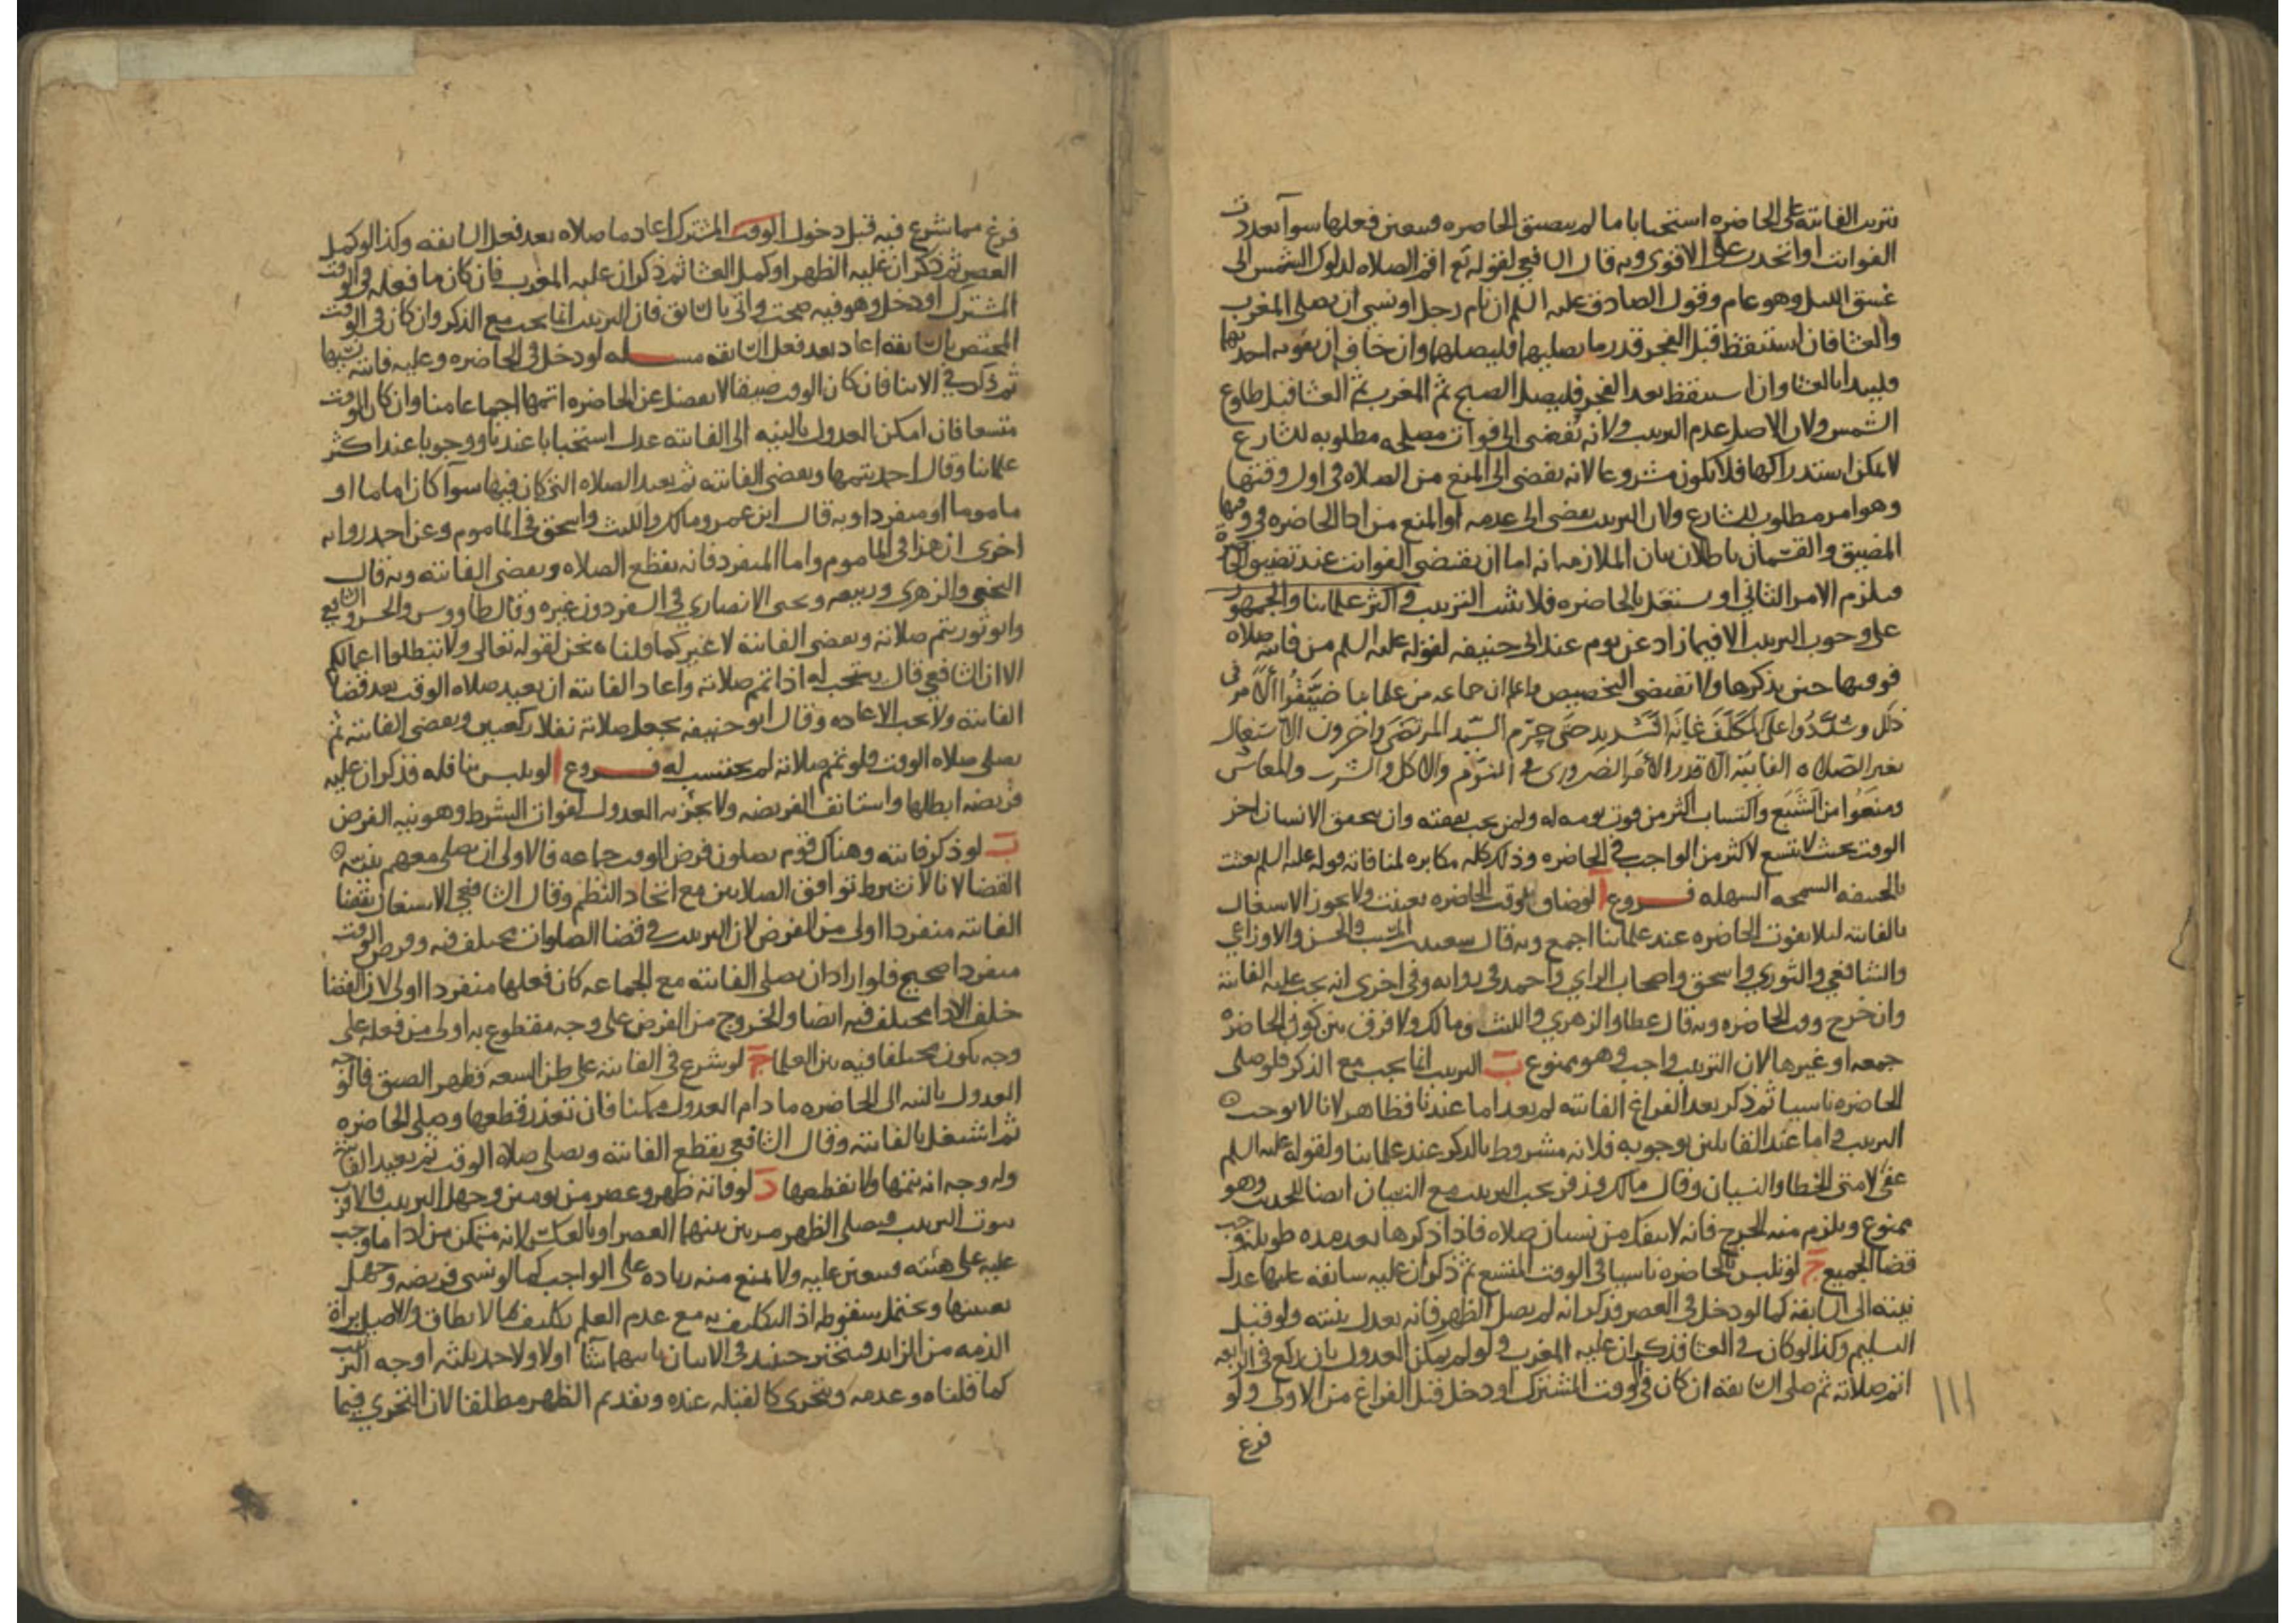 ترتب الفائتة على الحاضره استحبابا ما لم يتضيق الحاضره فيتعين فعلها سوآ تعددت
الفوائت او اتحدت على الاقوى وبه قال الشافعي لقوله تع اقم الصلاه لدلوك الشمس الى
غسق الليل وهو عام وقول الصادق عليه السلم ان نام رجل او نسي ان يصلي المغرب
والعشا فان استيقظ قبل الفجر قدر ما يصليهما فليصلهما وان خاف ان يفوته احديهما
فليبدا بالعشا وان استيقظ بعد الفجر فليصل الصبح ثم المغرب ثم العشا قبل طلوع
الشمس ولان الاصل عدم الترتيب ولانه يفضي الى فوات مصلحه مطلوبه للشارع
لا يمكن استدراكها فلا يكون مشروعا لانه يفضي الى المنع من الصلاه في اول وقتها
وهو امر مطلوب للشارع ولان الترتيب يفضي الى عدمه او المنع من ادا الحاضره في وقتها
المضيق والقسمان باطلان بيان الملازمه انه اما ان يقتضي الفوائت عند تضيق الحاضرة
فيلزم الامر الثاني او يشتغل بالحاضره فلا يثبت الترتيب و اكثر علمائنا والجمهور
على وجوب الترتيب الا فيما زاد عن يوم عند ابي حنيفه لقوله عليه السلم من فاتته صلاه
فوقتها حين يذكرها ولا تقتضي التخصيص واعلم ان جماعه من علمائنا ضيَّقُوا الأمر في
ذلك وشدَّدُوا على المكلَّف غايَة التشديد حتى حرّم السَّيد المرتضَى واخرون الاشتغال
بغير الصَّلاه الفايتة الا قدر الأمر الضروري في النوم والاكل والشرب والمعاش
ومنعُوا من الشبع واكتساب اكثر من قوت يومه له ولمن يجب نفقته وان يتحقق الانسان اخر
الوقت بحيث لا يتسع لاكثر من الواجب في الحاضره وذلك كله مكابره لمنافاته قوله عليه السلم بعثت
بالحنيفه السمحه السهله فـــروع ا لو ضاق وقت الحاضره تعينت ولا يجوز الاشتغال
بالفائته ليلا يفوت الحاضره عند علمائنا اجمع وبه قال سعيد بن المسيب والحسن والاوزاعي
والشافعي والثوري واسحق واصحاب الراي واحمد في روايه وفي اخرى انه يجب عليه الفائتة
وان خرج وقت الحاضره وبه قال عطا والزهري والليث ومالك ولا فرق بين كون الحاضره
جمعه او غيرها لان الترتيب واجب وهو ممنوع ب الترتيب انما يجب مع الذكر فلو صلى
الحاضره ناسيا ثم ذكر بعد الفراغ الفائته لم يعد اما عندنا فظاهر لانا لا نوجب
الترتيب و اما عند القايلين بوجوبه فلانه مشروط بالذكر عند علمائنا ولقوله عليه السلم
عفي لامتي الخطا والنسيان وقال مالك وزفر يجب الترتيب مع النسيان ايضا للحديث وهو
ممنوع ويلزم منه الحرج فانه لا ينفك من نسيان صلاه فاذا ذكرها بعد مده طويله وجب
قضا الجميع ج لو تلبس بالحاضره ناسيا في الوقت المتسع ثم ذكر ان عليه سابقه عليها عدل
نيته الى السابقة كما لو دخل في العصر فذكر انه لم يصل الظهر فانه يعدل بنيته ولو قبل
التسليم وكذا لو كان في العشا فذكر ان عليه المغرب و لو لم يمكن العدول بان ركع في الرابعه
اتم صلاته ثم صلى السابقه ان كان في الوقت المشترك او دخل قبل الفراغ من الاولى ولو
فرغ
ااا
فرغ مما شرع فيه قبل دخول الوقت المشترك اعاد ما صلاه بعد فعل السابقه وكذا لو كمل
العصر ثم ذكر ان عليه الظهر او كمل العشا ثم ذكر ان عليه المغرب فان كان ما فعله في الوقت
المشترك او دخل وهو فيه صحت واتى بالسابق فان الترتيب انما يجب مع الذكر وان كان في الوقت
المختص بالسابقه اعاد بعد فعل السابقه مســـله لو دخل في الحاضره وعليه فائته نسيها
ثم ذكر في الاثنا فان كان الوقت ضيقا لا يفضل عن الحاضره اتمها اجماعا منا وان كان الوقت
متسعا فان امكن العدول بالنيه الى الفائته عدل استحبابا عندنا ووجوبا عند اكثر
علمائنا وقال احمد يتمها ويقضي الفائته ثم يعيد الصلاه التي كان فيها سوآ كان اماما او
ماموما او منفردا وبه قال ابن عمر ومالك والليث واسحق في الماموم وعن احمد روايه
اخرى ان هذا في الماموم واما المنفرد فانه يقطع الصلاه ويقضي الفائته وبه قال
النخعي والزهري وربيعه ويحيى الانصاري في المنفرد دون غيره وقال طاووس والحسن والشافعي
وابو ثور يتم صلاته ويقضي الفائته لا غير كما قلناه نحن لقوله تعالى ولا تبطلوا اعمالكم
الا ان الشافعي قال يستحب له اذا تمم صلاته واعاد الفائته ان يعيد صلاه الوقت بعد قضا
الفائته ولا يجب الاعاده وقال ابو حنيفه يجعل صلاته نفلا ركعتين ويقضي الفائته ثم
يصلي صلاه الوقت فلو تمم صلاته لم يحتسب له فـــروع ا لو تلبس بنافله فذكر ان عليه
فريضه ابطلها واستانف الفريضه ولا يجزيه العدول لفوات الشرط وهو نيه الفرض
ب لو ذكر فائته وهناك قوم يصلون فرض الوقت جماعه فالاولى ان يصلي معهم بنية
القضا لانا لا نشرط توافق الصلاتين مع اتحاد النظم وقال الشافعي الاشتغال بقضا
الفائته منفردا اولى من الفرض لان الترتيب في قضا الصلوات مختلف فيه وفرض الوقت
منفردا صحيح فلو اراد ان يصلي الفائته مع الجماعه كان فعلها منفردا اولى لان القضا
خلف الادا مختلف فيه ايضا والخروج من الفرض على وجه مقطوع به اولى من فعله على
وجه يكون مختلفا فيه بين العلما ج لو شرع في الفائته على ظن السعه فظهر الضيق فالوجه
العدول بالنيه الى الحاضره ما دام العدول ممكنا فان تعذر قطعها وصلى الحاضره
ثم اشتغل بالفائته وقال الشافعي يقطع الفائته ويصلي صلاه الوقت ثم يعيد الفائته
وله وجه انه يتمها ولا يقطعها د لو فاتته ظهر وعصر من يومين وجهل الترتيب فالاقرب
ثبوت الترتيب فيصلي الظهر مرتين بينهما العصر او بالعكس لانه متمكن من ادا ما وجب
عليه على هيئته فيتعين عليه ولا يمنع منه زياده على الواجب كما لو نسي فريضه وجهل
تعيينها ويحتمل سقوطه اذ التكليف به مع عدم العلم تكليف بما لا يطاق والاصل براة
الذمه من الزايد فيتخير حينيذ في الاتيان بايهما شآ اولا ولاحمد ثلثه اوجه الترتيب
كما قلناه وعدمه ويتحرى كالقبله عنده وتقديم الظهر مطلقا لان التحري فيما